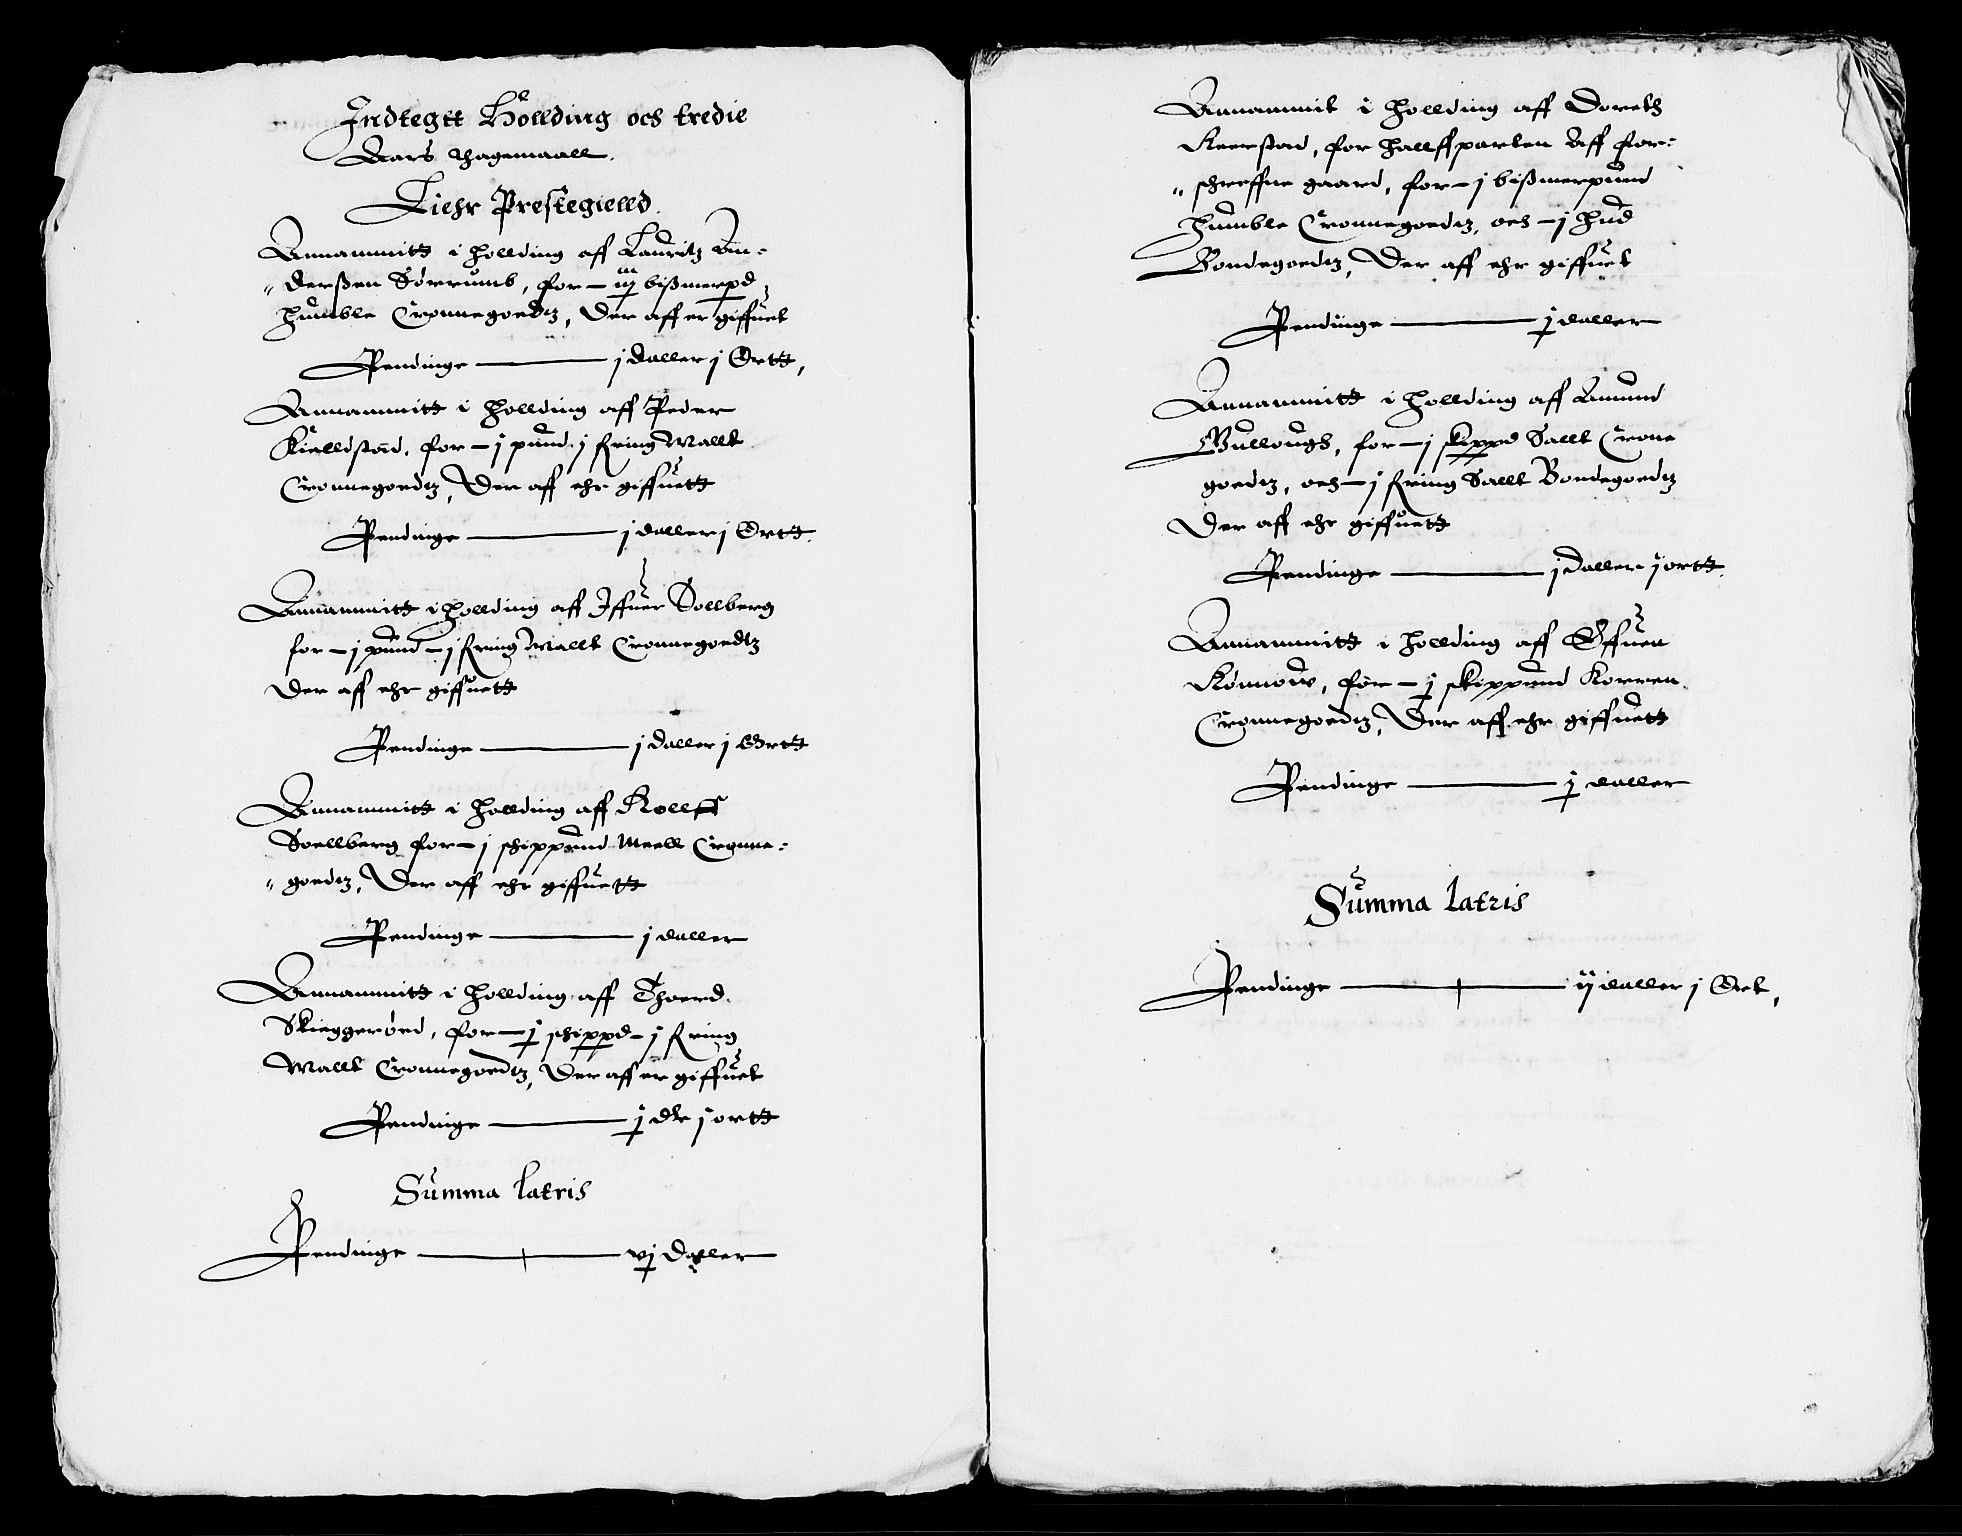 Indtegtt Hollding och tredie
Aars thagemaall.
Liehr Prestegielld
Annammitt i hollding aff Lauritz An-
"derßen Sørrumb, for - iij bißmerpd
Humble Cronnegoedtz, Der aff er giffuet
Pendinge — j daller j Ortt,
Annammitt i hollding aff Peder
Kielldstad, for - j pund j fring Mallt
Cronnegoedtz, Der aff ehr giffuett
Pendinge — j daller j Ortt.
Annammitt i hollding aff Iffuer Sollberg
for - j pund - j fring Mallt Cronnegoedtz
Der aff ehr giffuett
Pendinge — j daller j Ortt
Annammitt i hollding aff Rolleff
Soellberg for - j schippund Meell Cronne-
"goedtz, Der aff ehr giffuett
Pendinge — j daller
Annammitt i hollding aff Thoerd
Skieggerød, for - j schippd - j fring
Mallt Cronnegoedtz, Der aff er giffuet
Pendinge — j dlr j ortt
Summa latris
Pendinge — vj daller
Annammit i hollding aff Doreth
Keerstad, for hallffparten Aff for-
"schreffne gaard, for - j bißmerpund
Humble Cronnegoedtz, och - j hud
Bondegoedtz, Der aff ehr giffuet
Pendinge — j daller
Annammitt i hollding aff Amund
Gullough, for - j skippd Sallt Crone
goedtz, och - j fring Sallt Bondegoedtz
Der aff ehr giffuett
Pendinge — j daller j ortt.
Annammitt i hollding aff Effuen
Rønnow, for - j skippund Korren
Cronnegoedtz, Der aff ehr giffuett
Pendinge — j daller
Summa latris
Pendinge — ij daller j Ort,